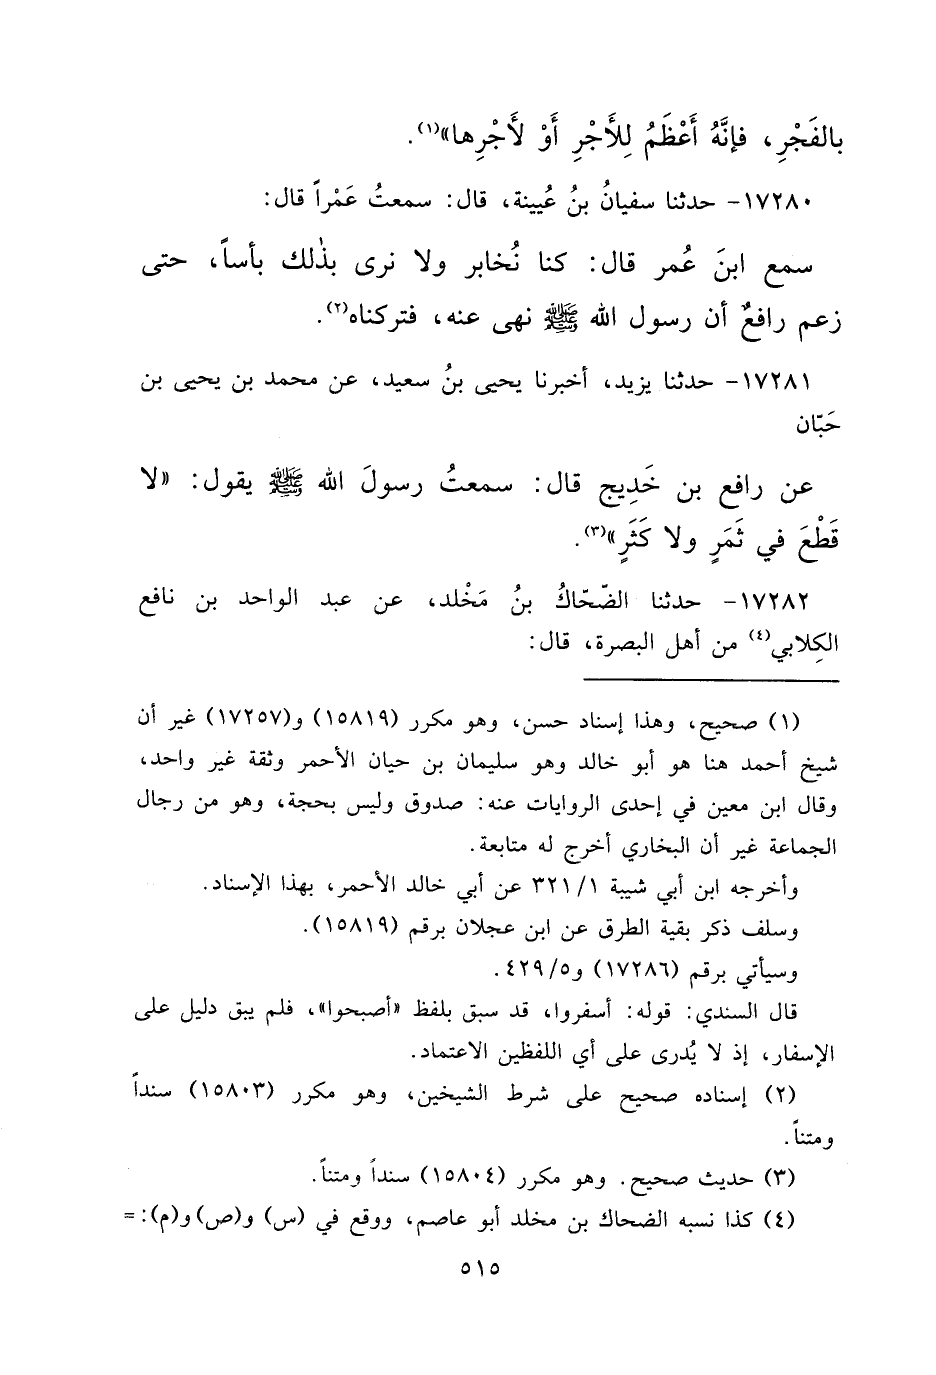 بالفَجْرِ، فإنَّهُ أَعْظَمُ لِلأَجْرِ أَوْ لأَجْرِها»(١).
١٧٢٨٠- حدثنا سفيانُ بنُ عُيينة، قال: سمعتُ عَمْراً قال:
سمع ابنَ عُمر قال: كنا نُخابر ولا نرى بذٰلك بأساً، حتى
زعم رافعٌ أن رسول الله ﷺ نهى عنه، فتركناه(٢).
١٧٢٨١- حدثنا يزيد، أخبرنا يحيى بنُ سعيد، عن محمد بن يحيى بن
حَبّان
عن رافع بن خَدِيج قال: سمعتُ رسولَ الله ﷺ يقول: «لا
قَطْعَ في ثَمَرٍ ولا كَثَرٍ»(٣).
١٧٢٨٢- حدثنا الضّحّاكُ بنُ مَخْلد، عن عبد الواحد بن نافع
الكِلابي(٤) من أهل البصرة، قال:
(١) صحيح، وهذا إسناد حسن، وهو مكرر (١٥٨١٩) و(١٧٢٥٧) غير أن
شيخ أحمد هنا هو أبو خالد وهو سليمان بن حيان الأحمر وثقة غير واحد،
وقال ابن معين في إحدى الروايات عنه: صدوق وليس بحجة، وهو من رجال
الجماعة غير أن البخاري أخرج له متابعة.
وأخرجه ابن أبي شيبة ٣٢١/١ عن أبي خالد الأحمر، بهذا الإسناد.
وسلف ذكر بقية الطرق عن ابن عجلان برقم (١٥٨١٩).
وسيأتي برقم (١٧٢٨٦) و٤٢٩/٥.
قال السندي: قوله: أسفروا، قد سبق بلفظ «أصبحوا»، فلم يبق دليل على
الإسفار، إذ لا يُدرى على أي اللفظين الاعتماد.
(٢) إسناده صحيح على شرط الشيخين، وهو مكرر (١٥٨٠٣) سنداً
ومتناً.
(٣) حديث صحيح. وهو مكرر (١٥٨٠٤) سنداً ومتناً.
(٤) كذا نسبه الضحاك بن مخلد أبو عاصم، ووقع في (س) و(ص) و(م): =
٥١٥